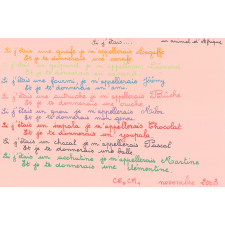 Si j'étais.... un animal d'Afrique
Si j'étais une girafe je m'appellerais
Et je te donnerais une carafe.
Si j'étais un guépard je m'appellerais
Et je te donnerais un
Si j'étais une fourmi, je m'appellerais Jérémy
Et je te donnerais un ami.
Si j'étais une autruche je m'appellerais
Et je te donnerais une cruche
Si j'étais un gnou je m'appellerais
Et je te donnerais mon genou.
Si j'étais un impala je m'appellerais Chocolat
Et je te donnerais un
Si j'étais un chacal je m'appellerais Pascal
Et je te donnerais une balle
Si j'étais un achatine je m'appellerais Martine
Et je te donnerais une clémentine.
novembre 2008